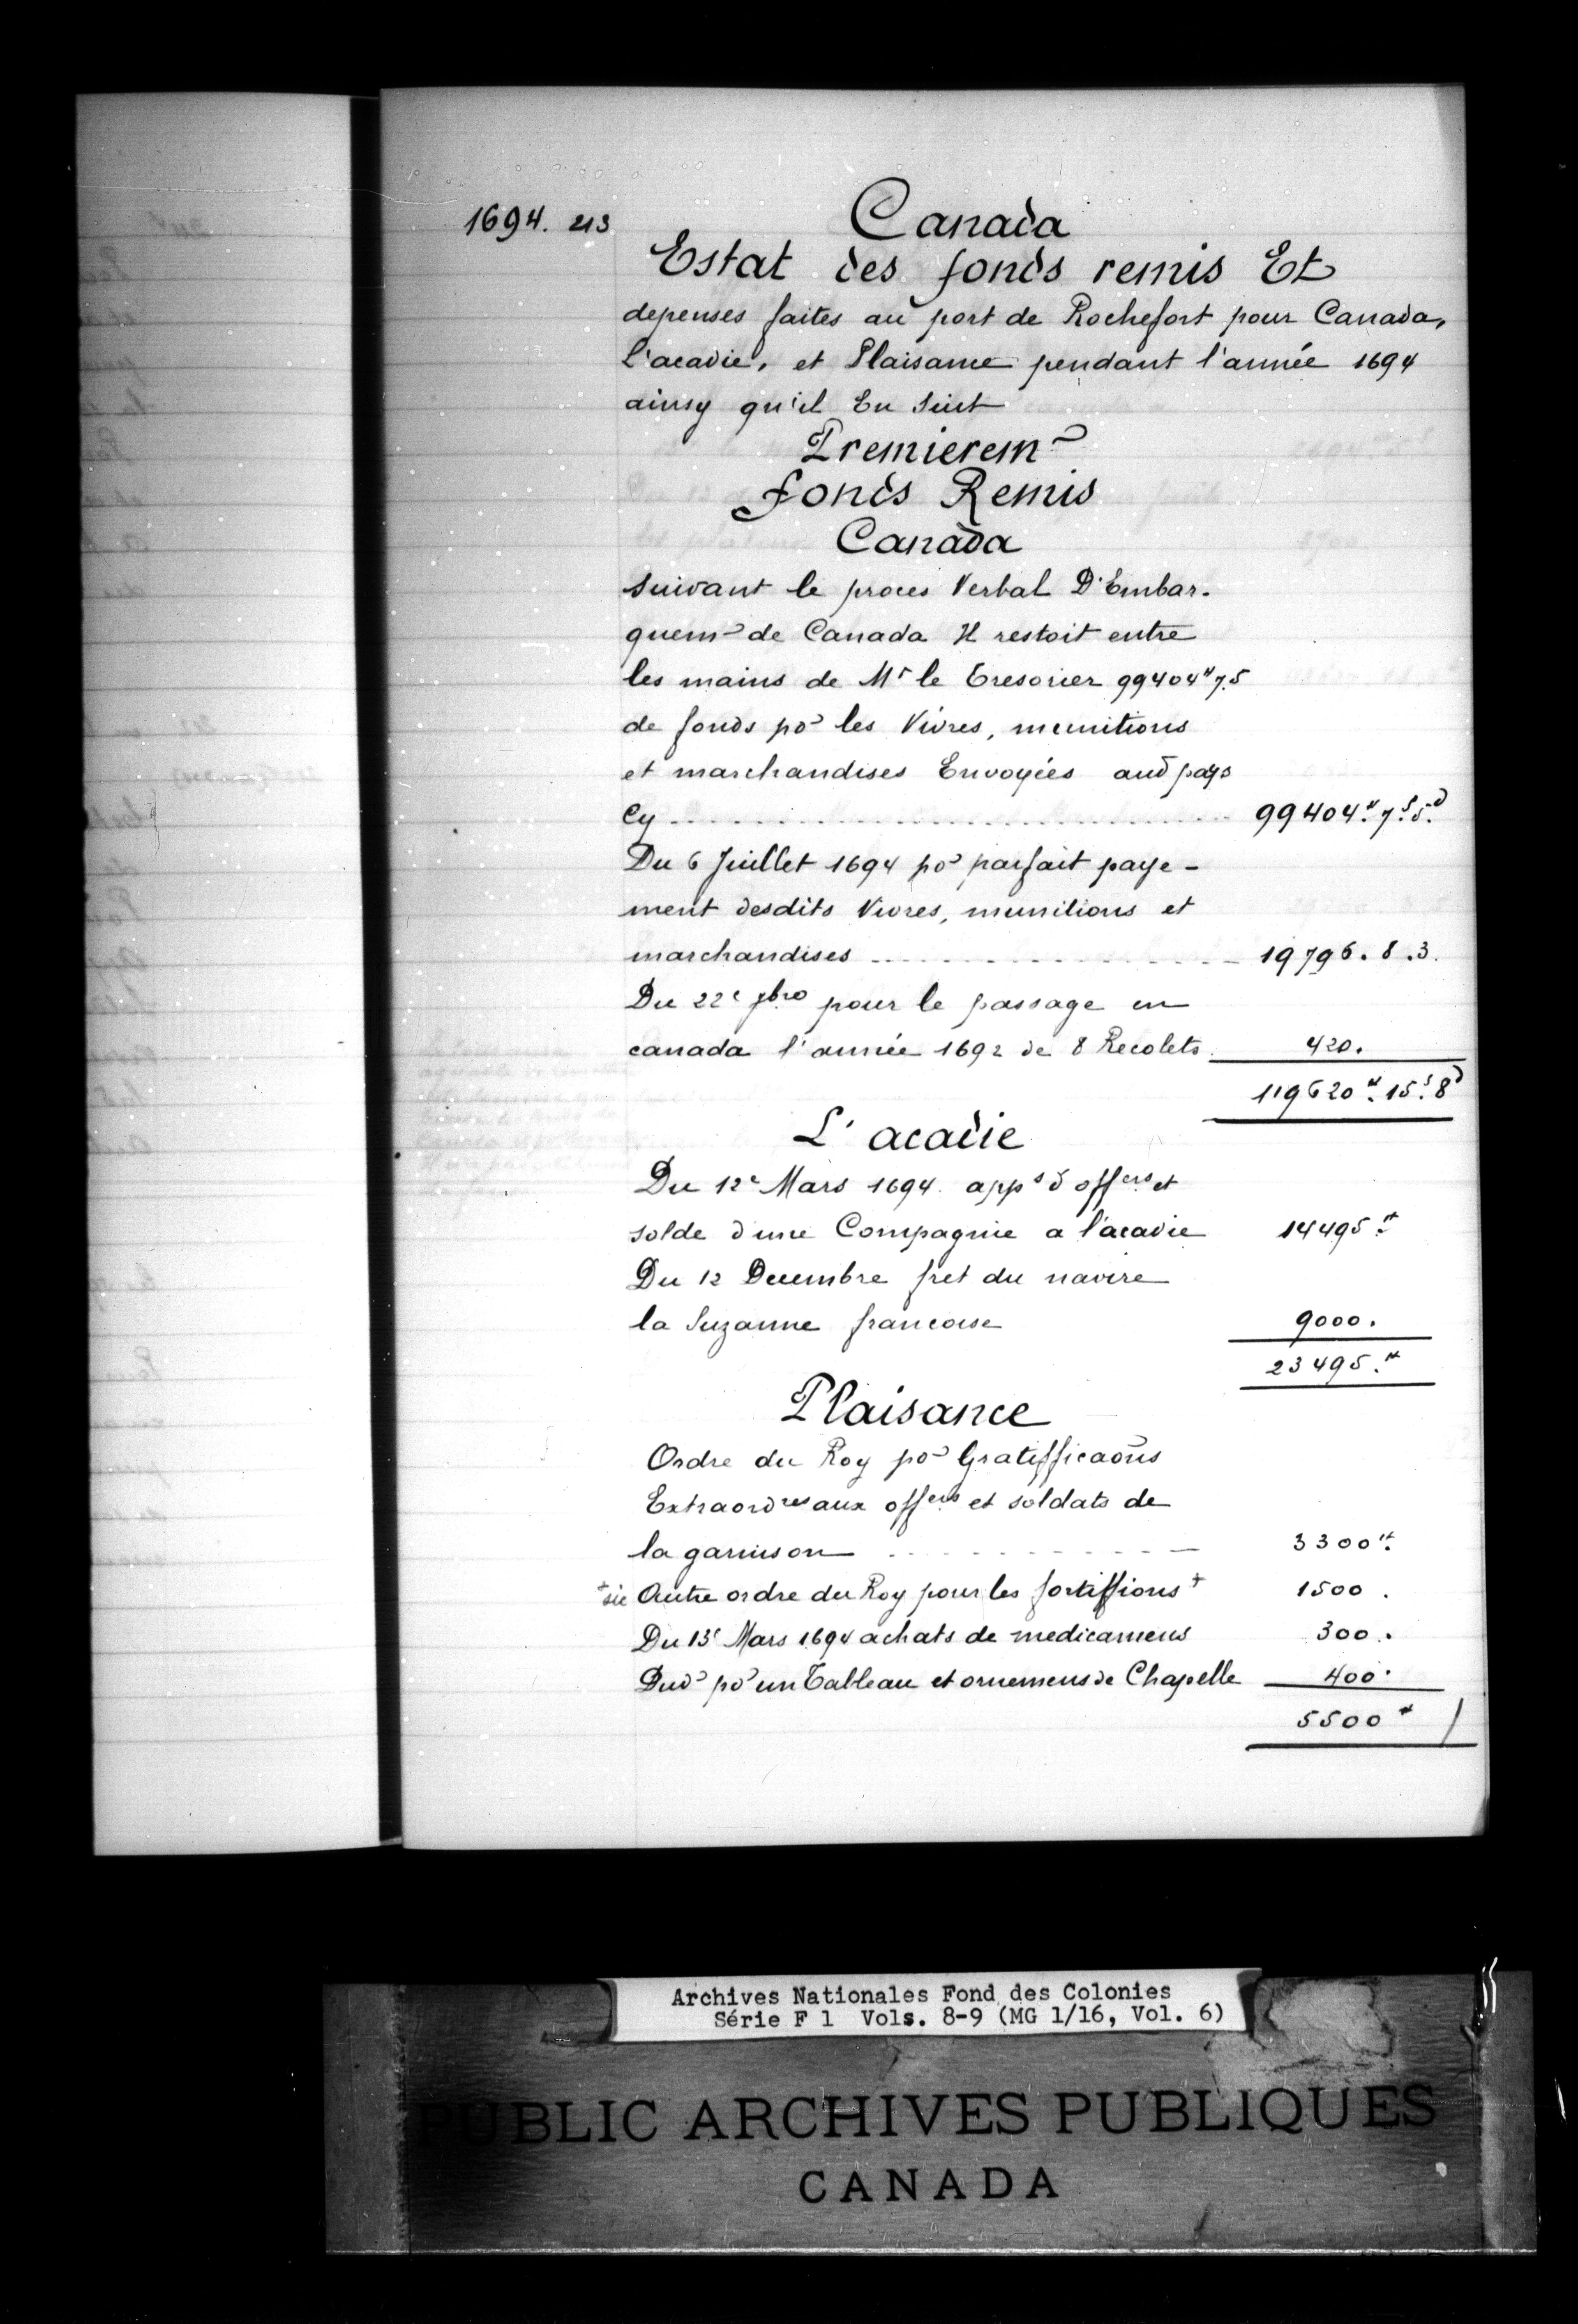 1694. 213
Canada
Estat des fonds remis Et
depenses faites au port de Rochefort pour Canada,
l'acadie, et Plaisance pendant l'année 1694
ainsy qu'il En Suit
Premierem~
fonds Remis
Canada
suivant le proces Verbal D'Embar-
quem~ de Canada Il restoit entre
les mains de Mr le Tresorier 99404# 7.5
de fonds po~ les Vivres, munitions
et marchandises Envoyées aud~ pays
Cy - - - - - - - - - - 99404#. 7s. 5d.
Du 6 Juillet 1694 po~ parfait paye-
ment desdits Vivres, munitions et
marchandises - - - - - - - - 19796. 8. 3.
Du 22e 7bre pour le passage en
canada l'année 1692 de 8 Recolets 420.
119620#. 15s. 8d
L'acadie
Du 12e Mars 1694. apps d'offers et
solde d'une Compagnie a l'acadie 14495#.
Du 12 Decembre fret du navire
la Suzanne francoise 9000.
23495.#
Plaisance
Ordre du Roy po~ Gratifficaõns
Extraordres aux offers et soldats de
la garnison - - - - - - - 3300#.
+sic Autre ordre du Roy pour les fortiffions+ 1500.
Du 13e Mars 1694 achats de medicamens 300.
Dud~ po~ un Tableau et ornemens de Chapelle 400.
5500#
Archives Nationales Fond des Colonies
Série F 1 Vols. 8-9 (MG 1/16, Vol. 6)
PUBLIC ARCHIVES PUBLIQUES
CANADA